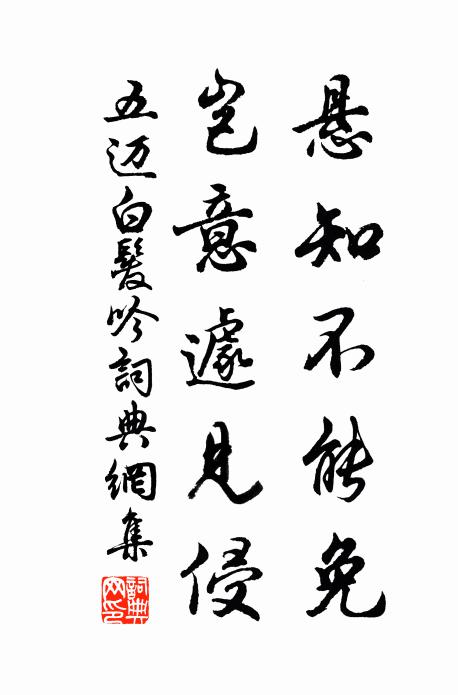 悬知不能免
岂意遽见侵
五迈白髮吟詞典網集
詞典网印